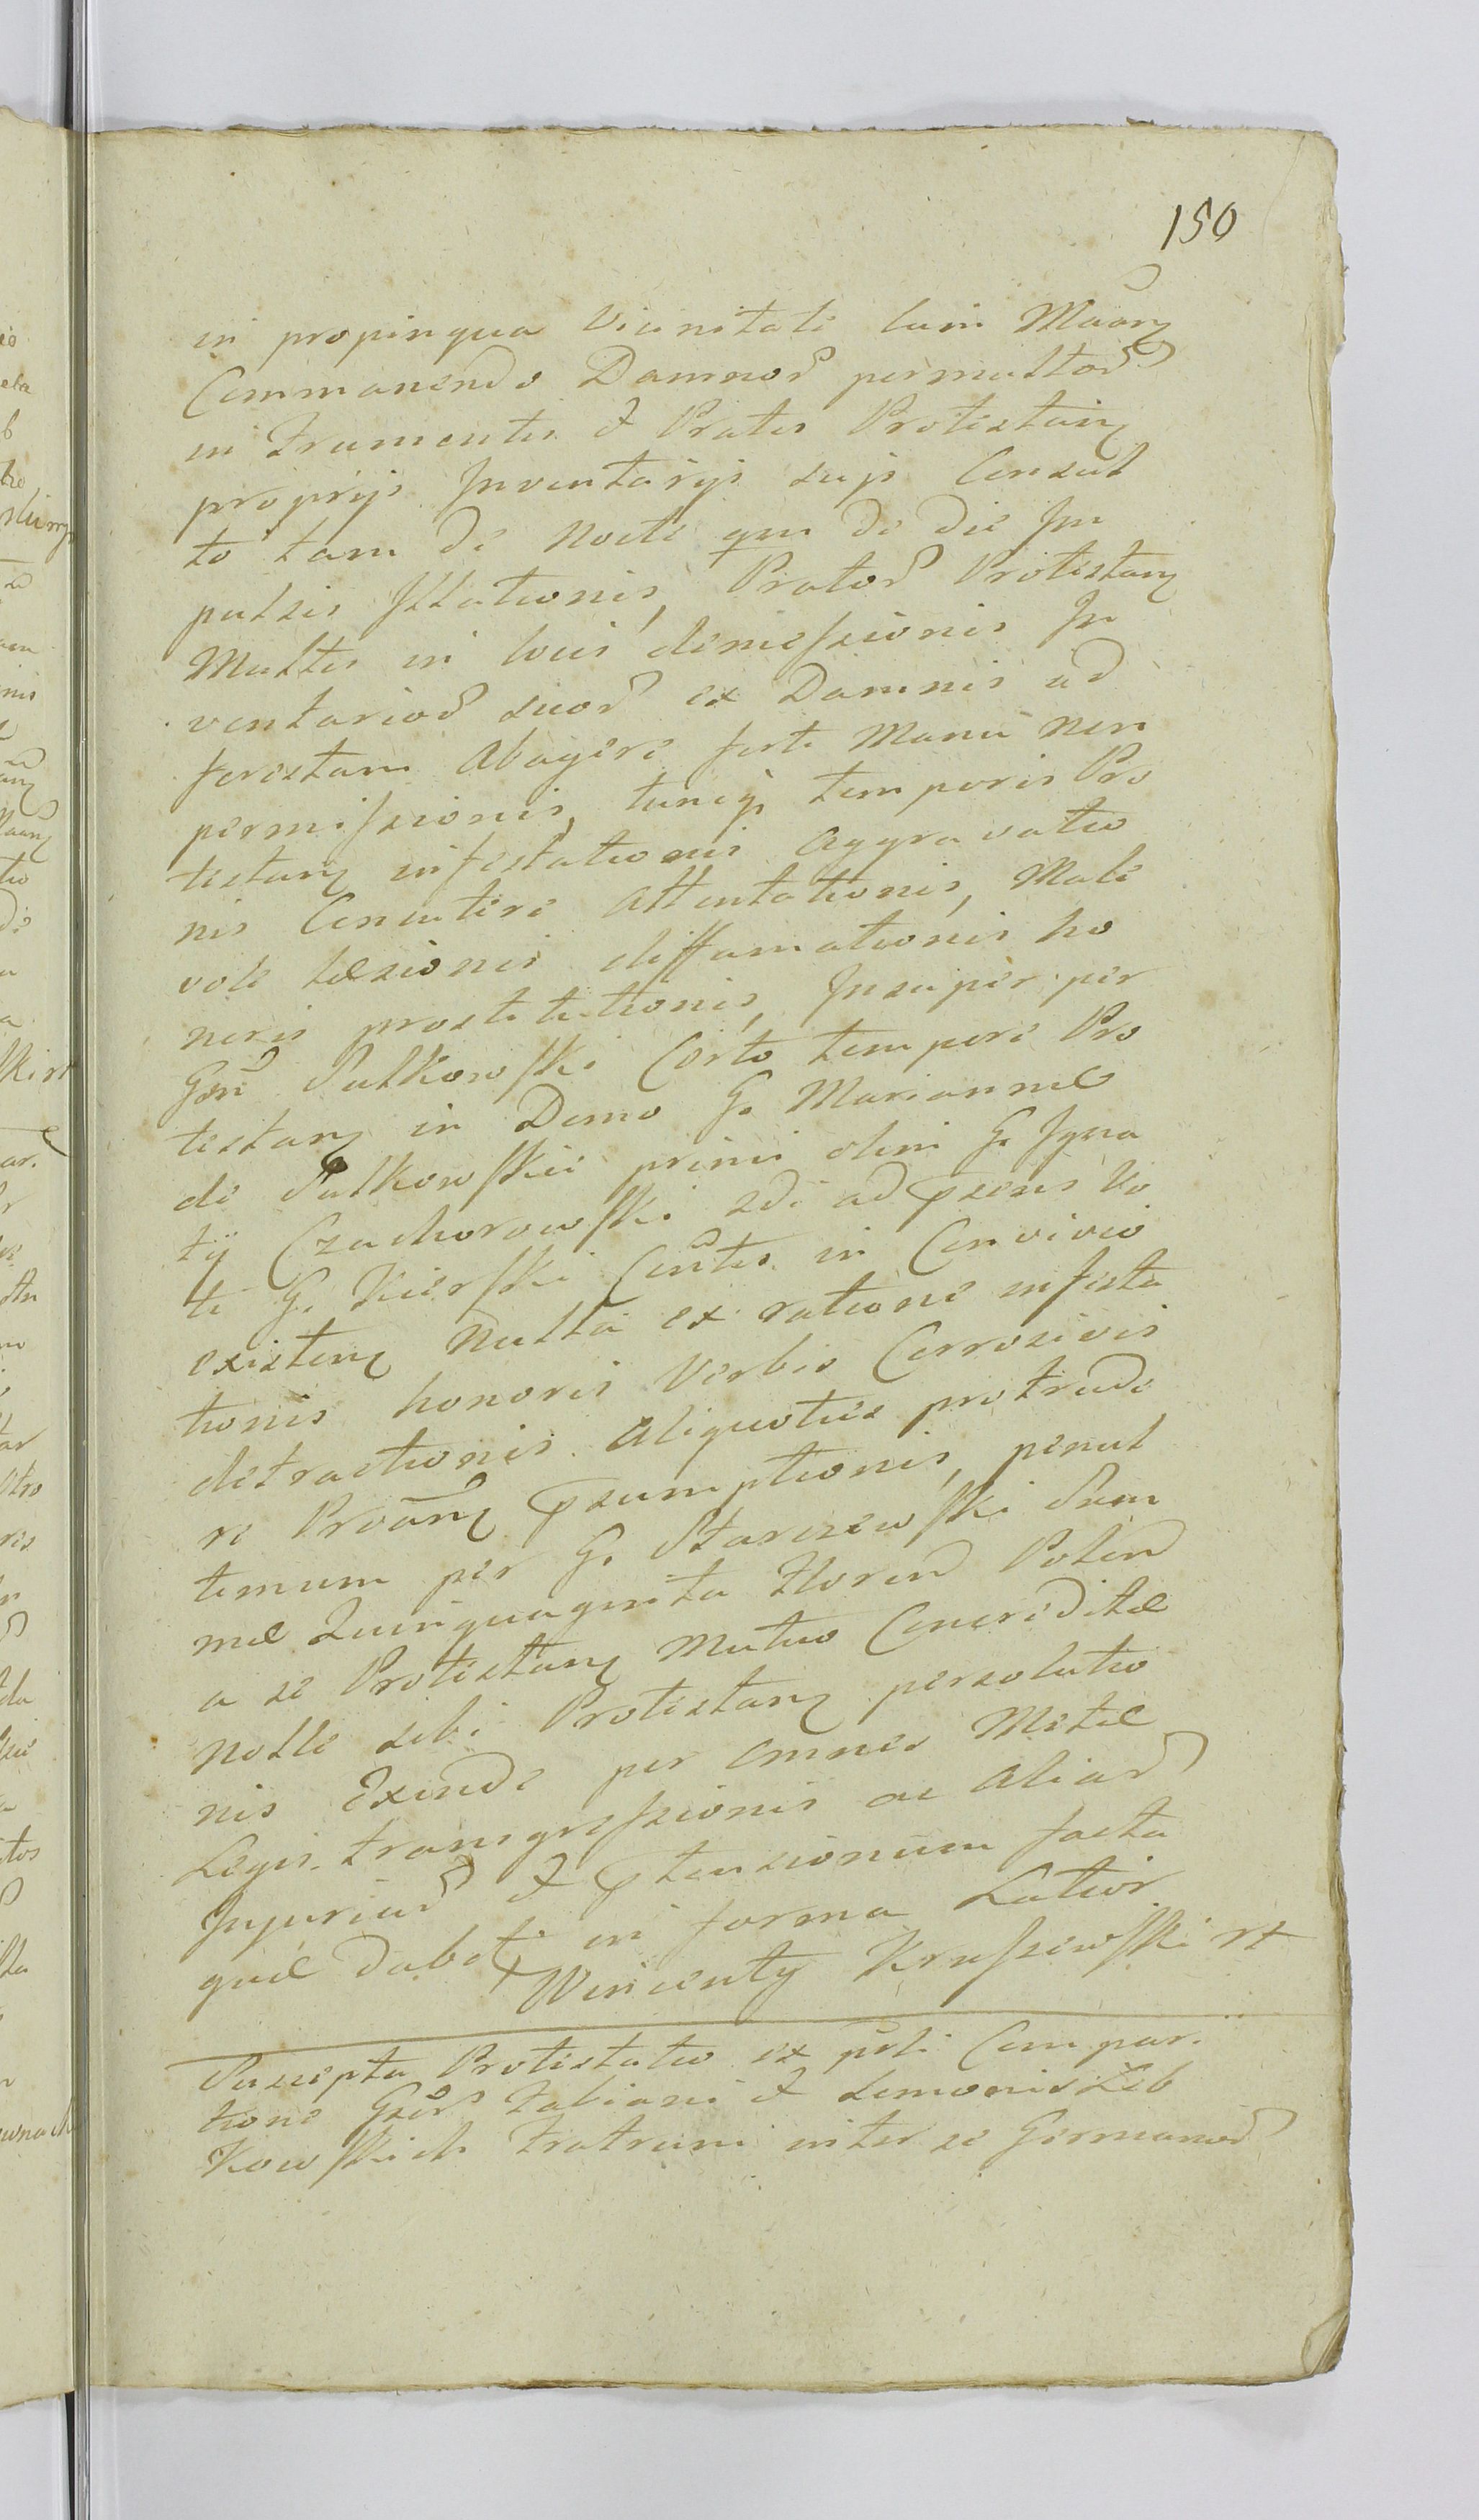 150
in propinqua Vicinitate cum Māan
Commanendo Damnoꝝ permultoꝝ
in Frumentis & Pratis Protestan
proprijs Inventarijs suis Consul
to tam de Nocte qm de die Im
pulsis Illationis, Pratoꝝ Protestan
Multis in locis demessionis In
ventarioꝝ suoꝝ ex Damnis ad
forestam Abagere forti Manu non
permissionis, tuncqꝫ temporis Pro
testan infestationis Aggravatio
nis Concutere Attentationis, Male
vole læsionis diffamationis ho
noris prostitutionis, Insuper per
Gsn̄ Sulkowski Certo tempore Pro
testan in Domo G. Mariannæ
de Sulkowskie primi olim G. Igna
tÿ Czachorowski 2di ad pnsens Vo
ti G. Kierski Con̄tis in Convivio
existen Nulla ex ratione infesta
tionis honoris Verbis Corrosivis
detractionis Aliquoties protrude
re Proān præsumptionis, penul
timum per G. Starczewski Sum
mæ Quinquaginta Floren Polon
a se Protestan Mutuo Concreditæ
Nolle sibi Protestan persolutio
nis Exinde per omnes Metæ
Legis transgressionis ac Aliaꝝ
Injuriaꝝ & prætensionum facta
quæ dabit in forma Latior
Wincenty Kruszewski rt
Suscepta Protestatio ex pn̄li Compari
tione Gsoꝝ Fabiani & Simonis Żeb
kowskich Fratrum inter se Germanoꝝ